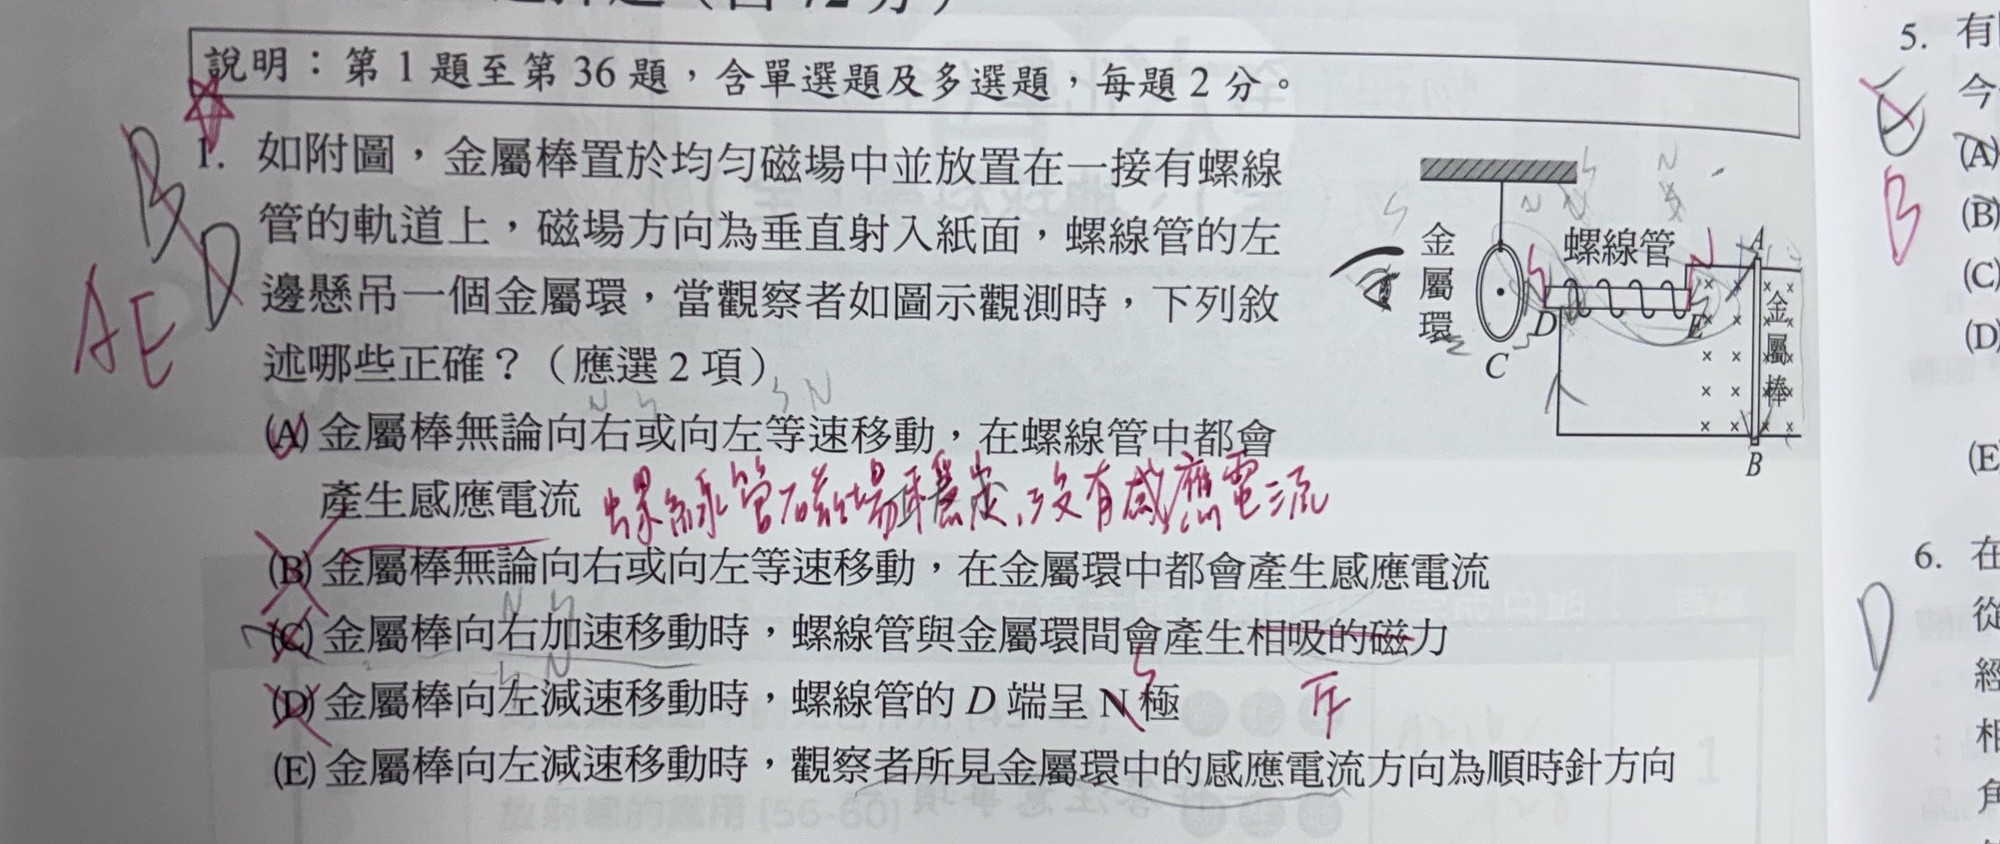 說明：第 1 題至第 36 題，含單選題及多選題，每題 2 分。
B
D
AE
1. 如附圖，金屬棒置於均勻磁場中並放置在一接有螺線
管的軌道上，磁場方向為垂直射入紙面，螺線管的左
邊懸吊一個金屬環，當觀察者如圖示觀測時，下列敘
述哪些正確？（應選 2 項）
N S S N
(A) 金屬棒無論向右或向左等速移動，在螺線管中都會
產生感應電流
螺線管磁場穩定,沒有感應電流
(B) 金屬棒無論向右或向左等速移動，在金屬環中都會產生感應電流
N S
(C) 金屬棒向右加速移動時，螺線管與金屬環間會產生相吸的磁力
斥
S N
(D) 金屬棒向左減速移動時，螺線管的 D 端呈 N 極
S
(E) 金屬棒向左減速移動時，觀察者所見金屬環中的感應電流方向為順時針方向
金屬環
螺線管
S N
A
D
E
C
金屬棒
B
5. 有
今
(A)
(B)
(C)
(D)
(E
B
6. 在
從
經
相
角
D